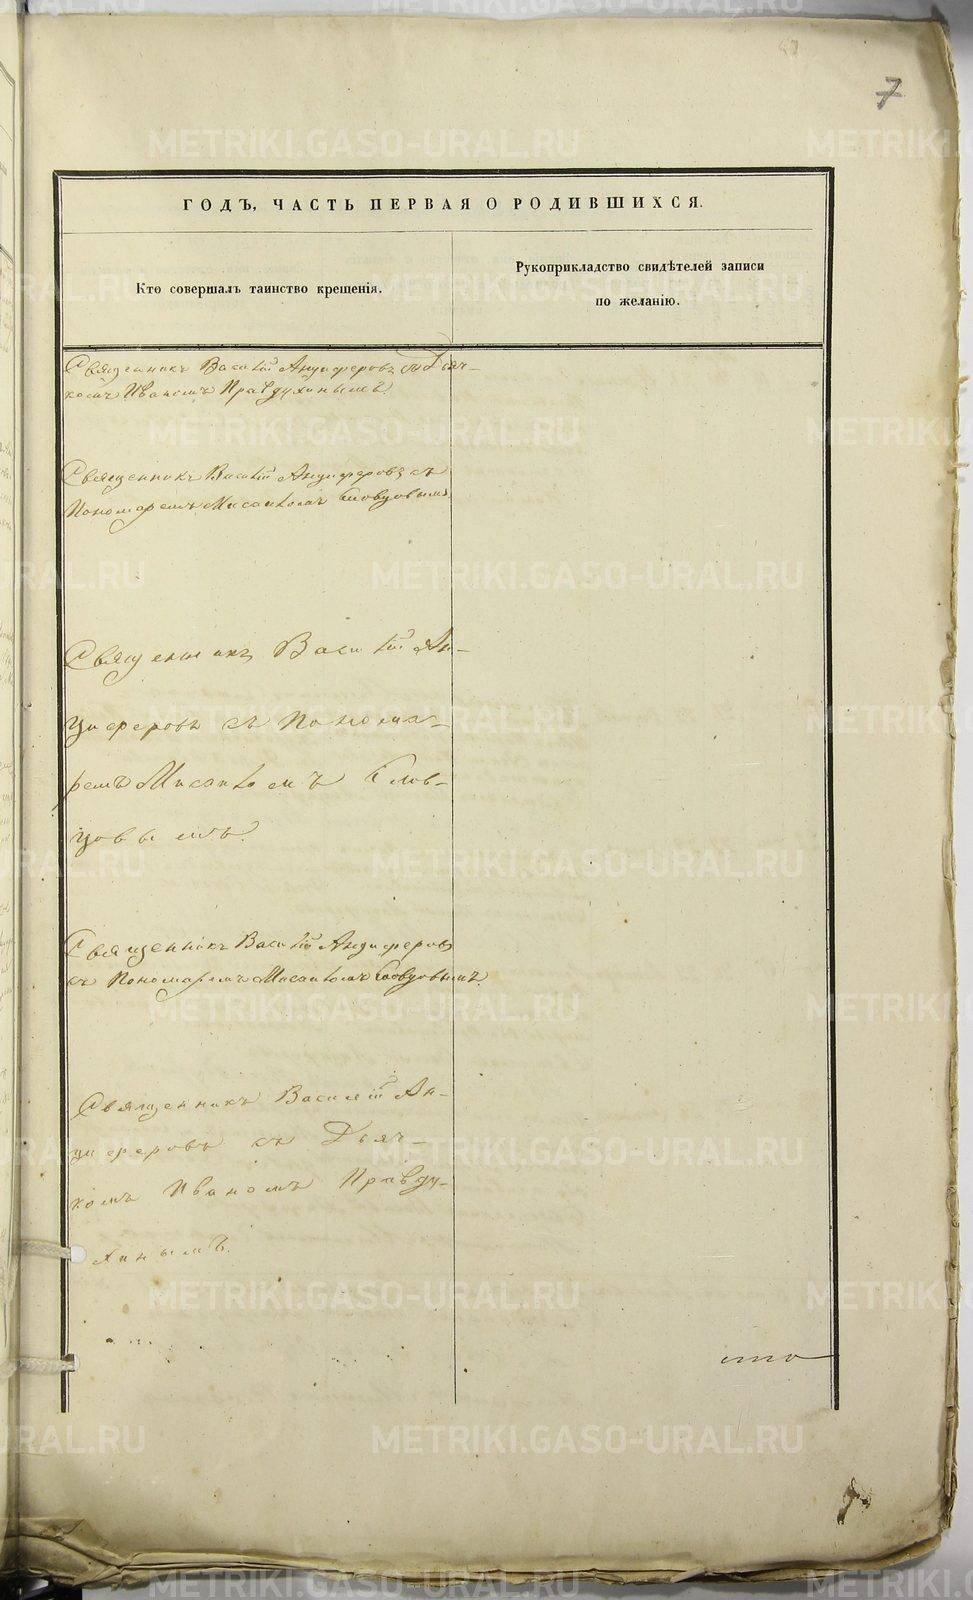 7
ГОДЪ, ЧАСТЬ ПЕРВАЯ О РОДИВШИХСЯ.
Кто совершалъ таинство крещенія.
Рукоприкладство свидѣтелей записи
по желанію.
Священникъ Василій Анциферовъ съ Дьяч-
комъ Иваномъ Правдухинымъ.
Священникъ Василій Анциферовъ съ
Пономаремъ Мисаиломъ Словцовымъ.
Священникъ Василій Ан-
циферовъ съ Понома-
ремъ Мисаиломъ Слов-
цовымъ.
Священникъ Василій Анциферовъ
съ Пономаремъ Мисаиломъ Словцовымъ.
Священникъ Василій Ан-
циферовъ съ Дьяч-
комъ Иваномъ Правду-
хинымъ.
METRIKI.GASO-URAL.RU